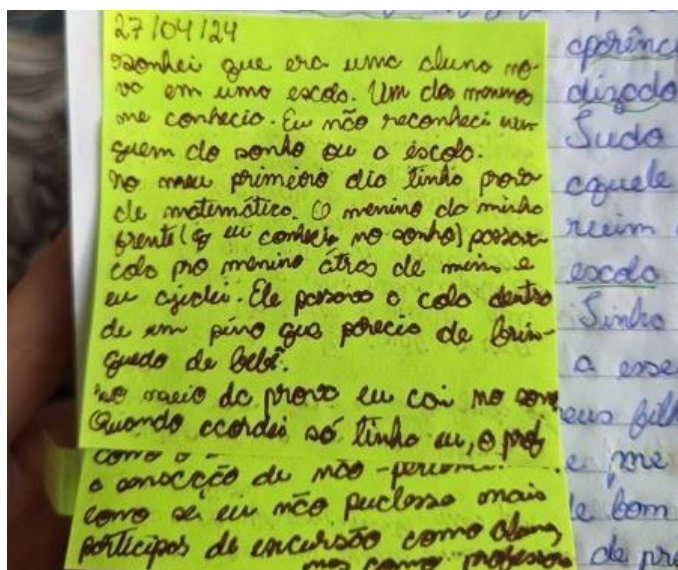 27/04/24
Sonhei que era uma aluna no-
va em uma escola. Um dos meninos
me conhecia. Eu não reconheci nin-
guém do sonho ou a escola.
No meu primeiro dia tinha prova
de matemática. O menino da minha
frente (q eu conhecia no sonho) passava
cola pro menino atrás de mim e
eu ajudei. Ele passava a cola dentro
de um pino que parecia de brin-
quedo de bebê.
No meio da prova eu caí no sono
Quando acordei só tinha eu, o prof
como o
a sensação de não-
como se eu não pudesse mais
participar de excursão como aluna
mas como professora
aparênc
dizado
Tudo
aquele
ruim
escola
Tinha
a esse
eus filh
e me
e bom
de pro